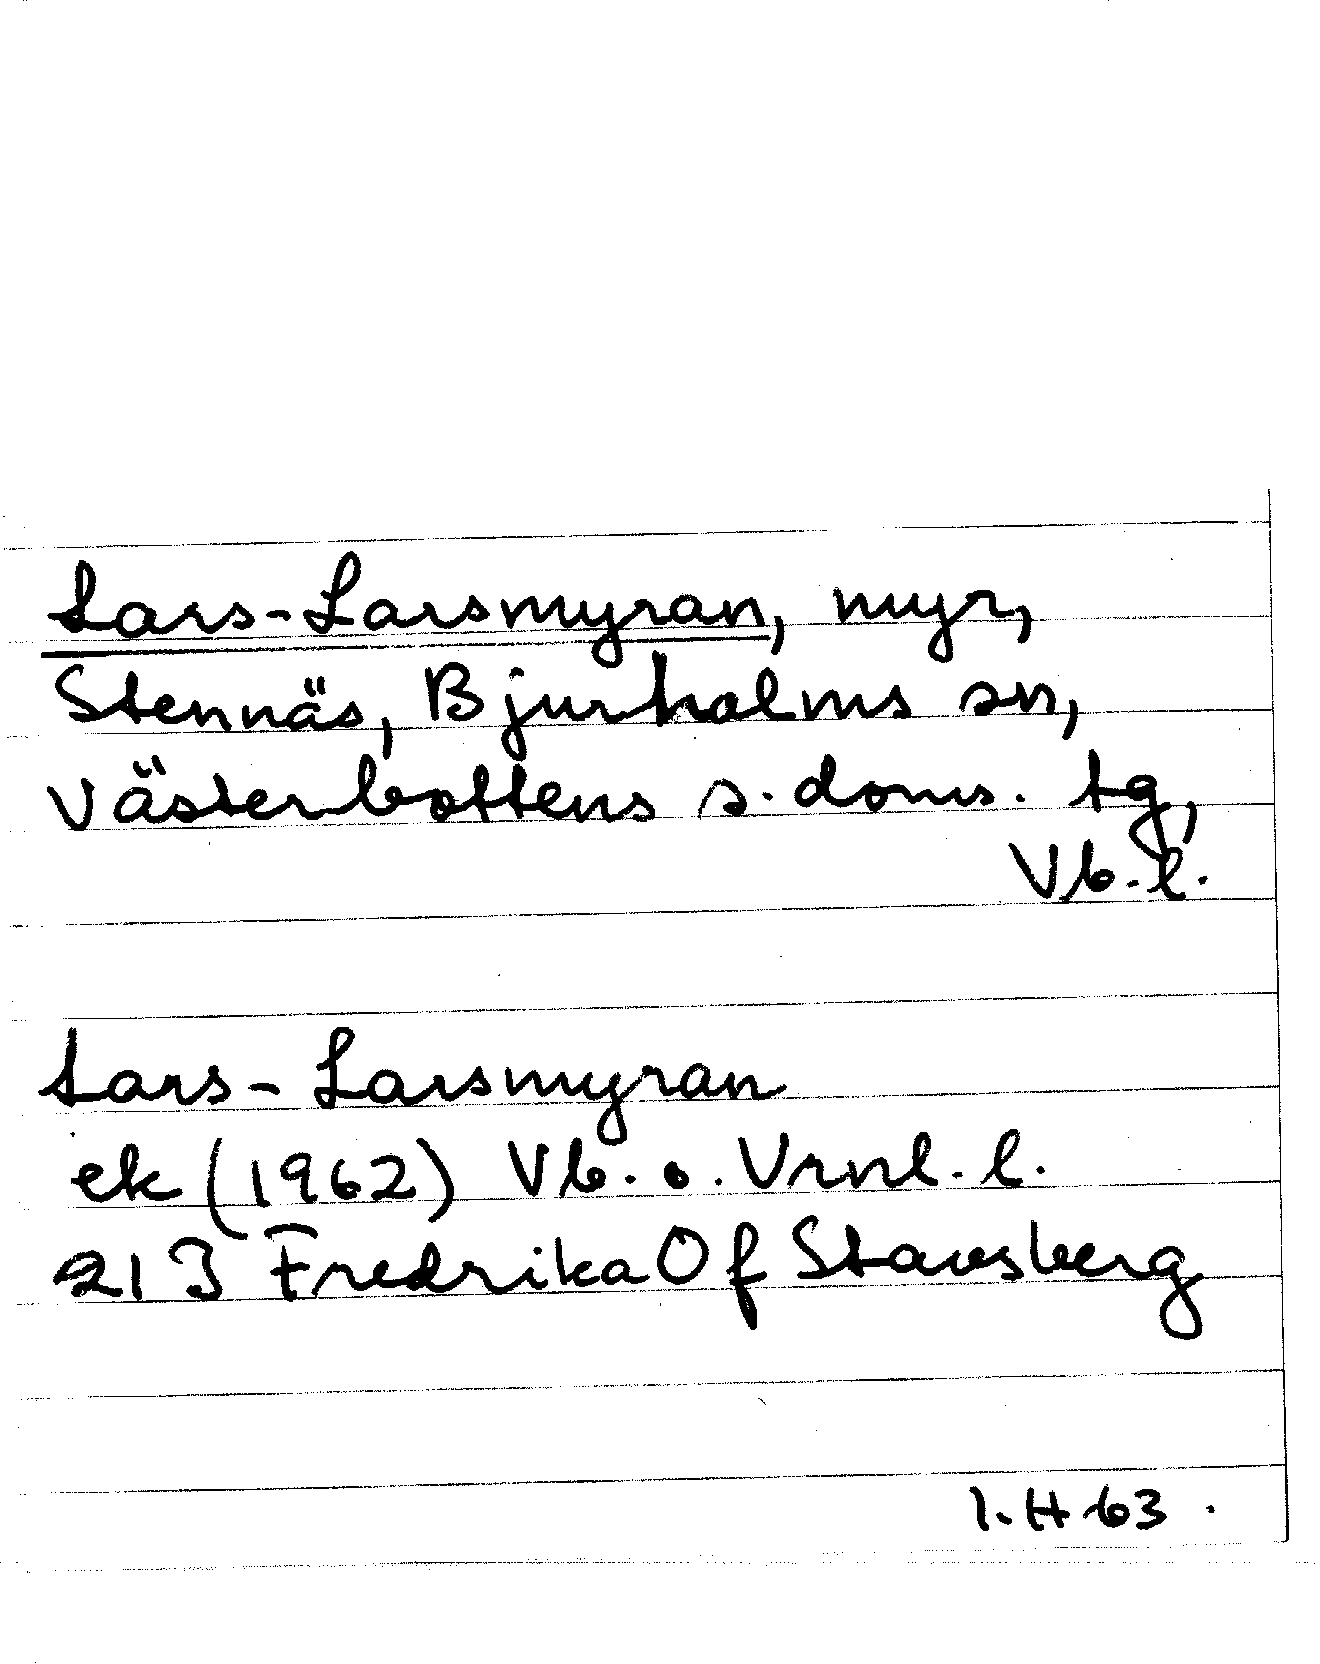 Lars-Larsmyran, myr,
Stennäs, Bjurholms sn,
Västerbottens s. doms. tg,
Vb. l.
Lars-Larsmyran
ek (1962) Vb. o. Vrnl. l.
21 J Fredrika Of Stavsberg
I. H 63.